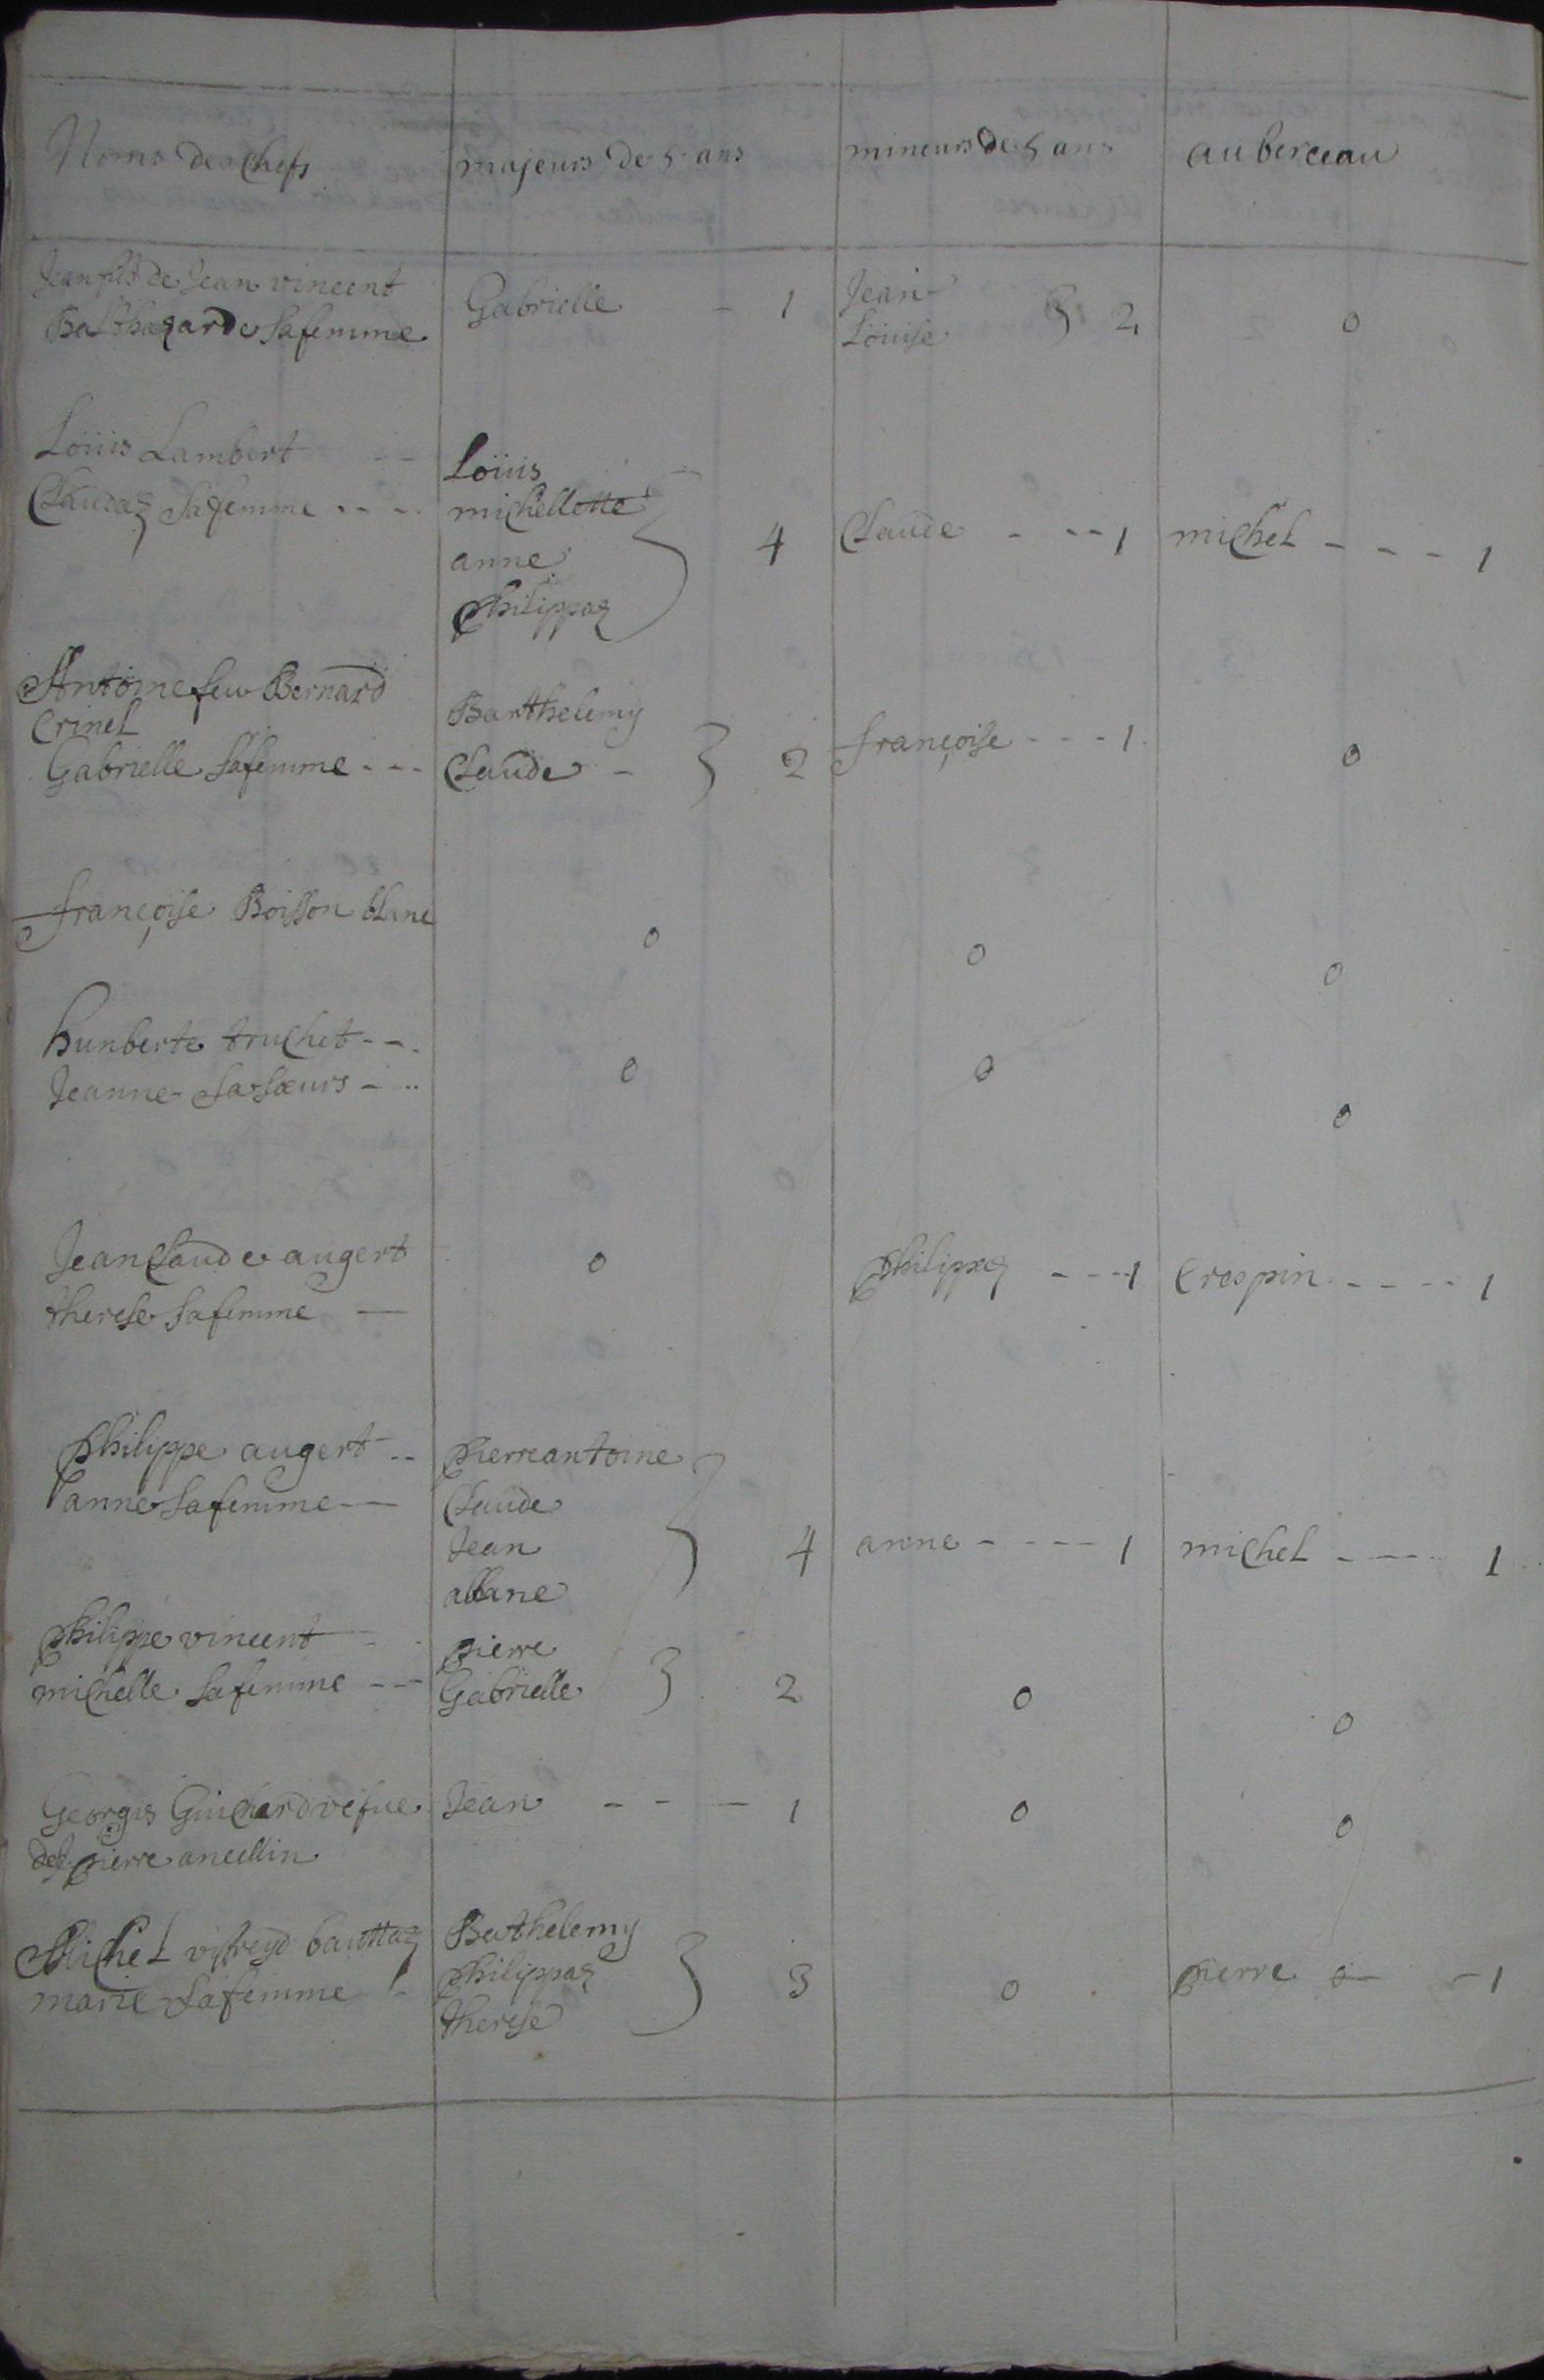 Noms des Chefs majeurs de 5 ans mineurs de 5 ans au berceau
Jean fils de Jean vincent Gabrielle - 1 Jean
Balthazarde sa femme Loüise } 2 0
Loüis Lambert -- Loüis
Claudaz sa femme ---- michellette
anne } 4 Claude - -- 1 michel - - - 1
philippaz
Antoine feu Bernard
Crinel Barthelemy
Gabrielle sa femme --- Claude - } 2 françoise --- 1 0
françoise Boisson blanc 0 0 0
humberte truchet --
Jeanne sa sœurs - .. 0 0 0
Jean Claude augert 0 philippaz --- 1 Crespin ---- 1
therese sa femme —
philippe augert -- pierre antoine
anne sa femme — Claude
Jean } 4 anne ---- 1 michel ---- 1
albane
philippe vincent - pierre
michelle sa femme --- Gabrielle } 2 0 0
Georgis Guicherd vefue Jean - - — 1 0 0
de pierre ancellin
Michel viffreyd bauttaz Barthelemy
marie sa femme - philippaz } 3 0 pierre - - 1
therese